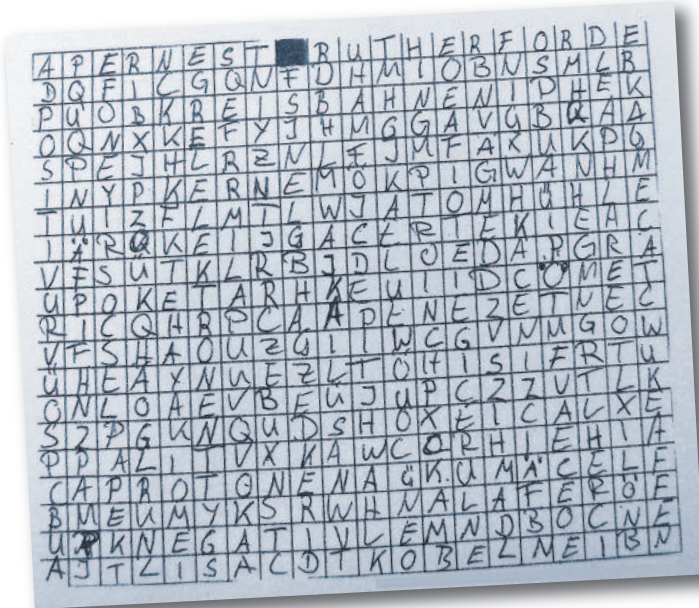 A P E R N E S T R U T H E R F O R D E
D Q F I C G Q N F D H M I O B N S M L B
P U O B K R E I S B A H N E N I D H E K
O Q N X K E F Y J H M G G A V G B Q A A
S P E J H L R Z N L E J M F A X U K P Q
I N Y P K E R N E M Ö K P I G W A N H M
T U I Z F L M T L W J A T O M H Ü H L E
I Ä R Q K E I J G A C E R T E K I E A C
V E S Ü T K L R B J D L O E D A P G R A
U P O K E T A R H K E U I I D C Ö M E T
R I C Q H R P C A A P L N E Z E T N E C
V F S H A O U Z G I I W C G V N M G O W
Ü H E Ä Y N U E Z L T Ö H I S I F R T U
Ö N L O A E V B F Ü J U P C Z Z U T L K
S Z P G U N Q U D S H O X E T C A L X E
P P A L I T V X K A W C O R H I E H I A
C A P R O T O N E N A Ü K U M Ä C E L E
B M E U M Y K S R W H N A L A F E R Ö F
U P K N E G A T I V L E M N D B O C N E
A J T L I S A C D T K O B E L N E I B N